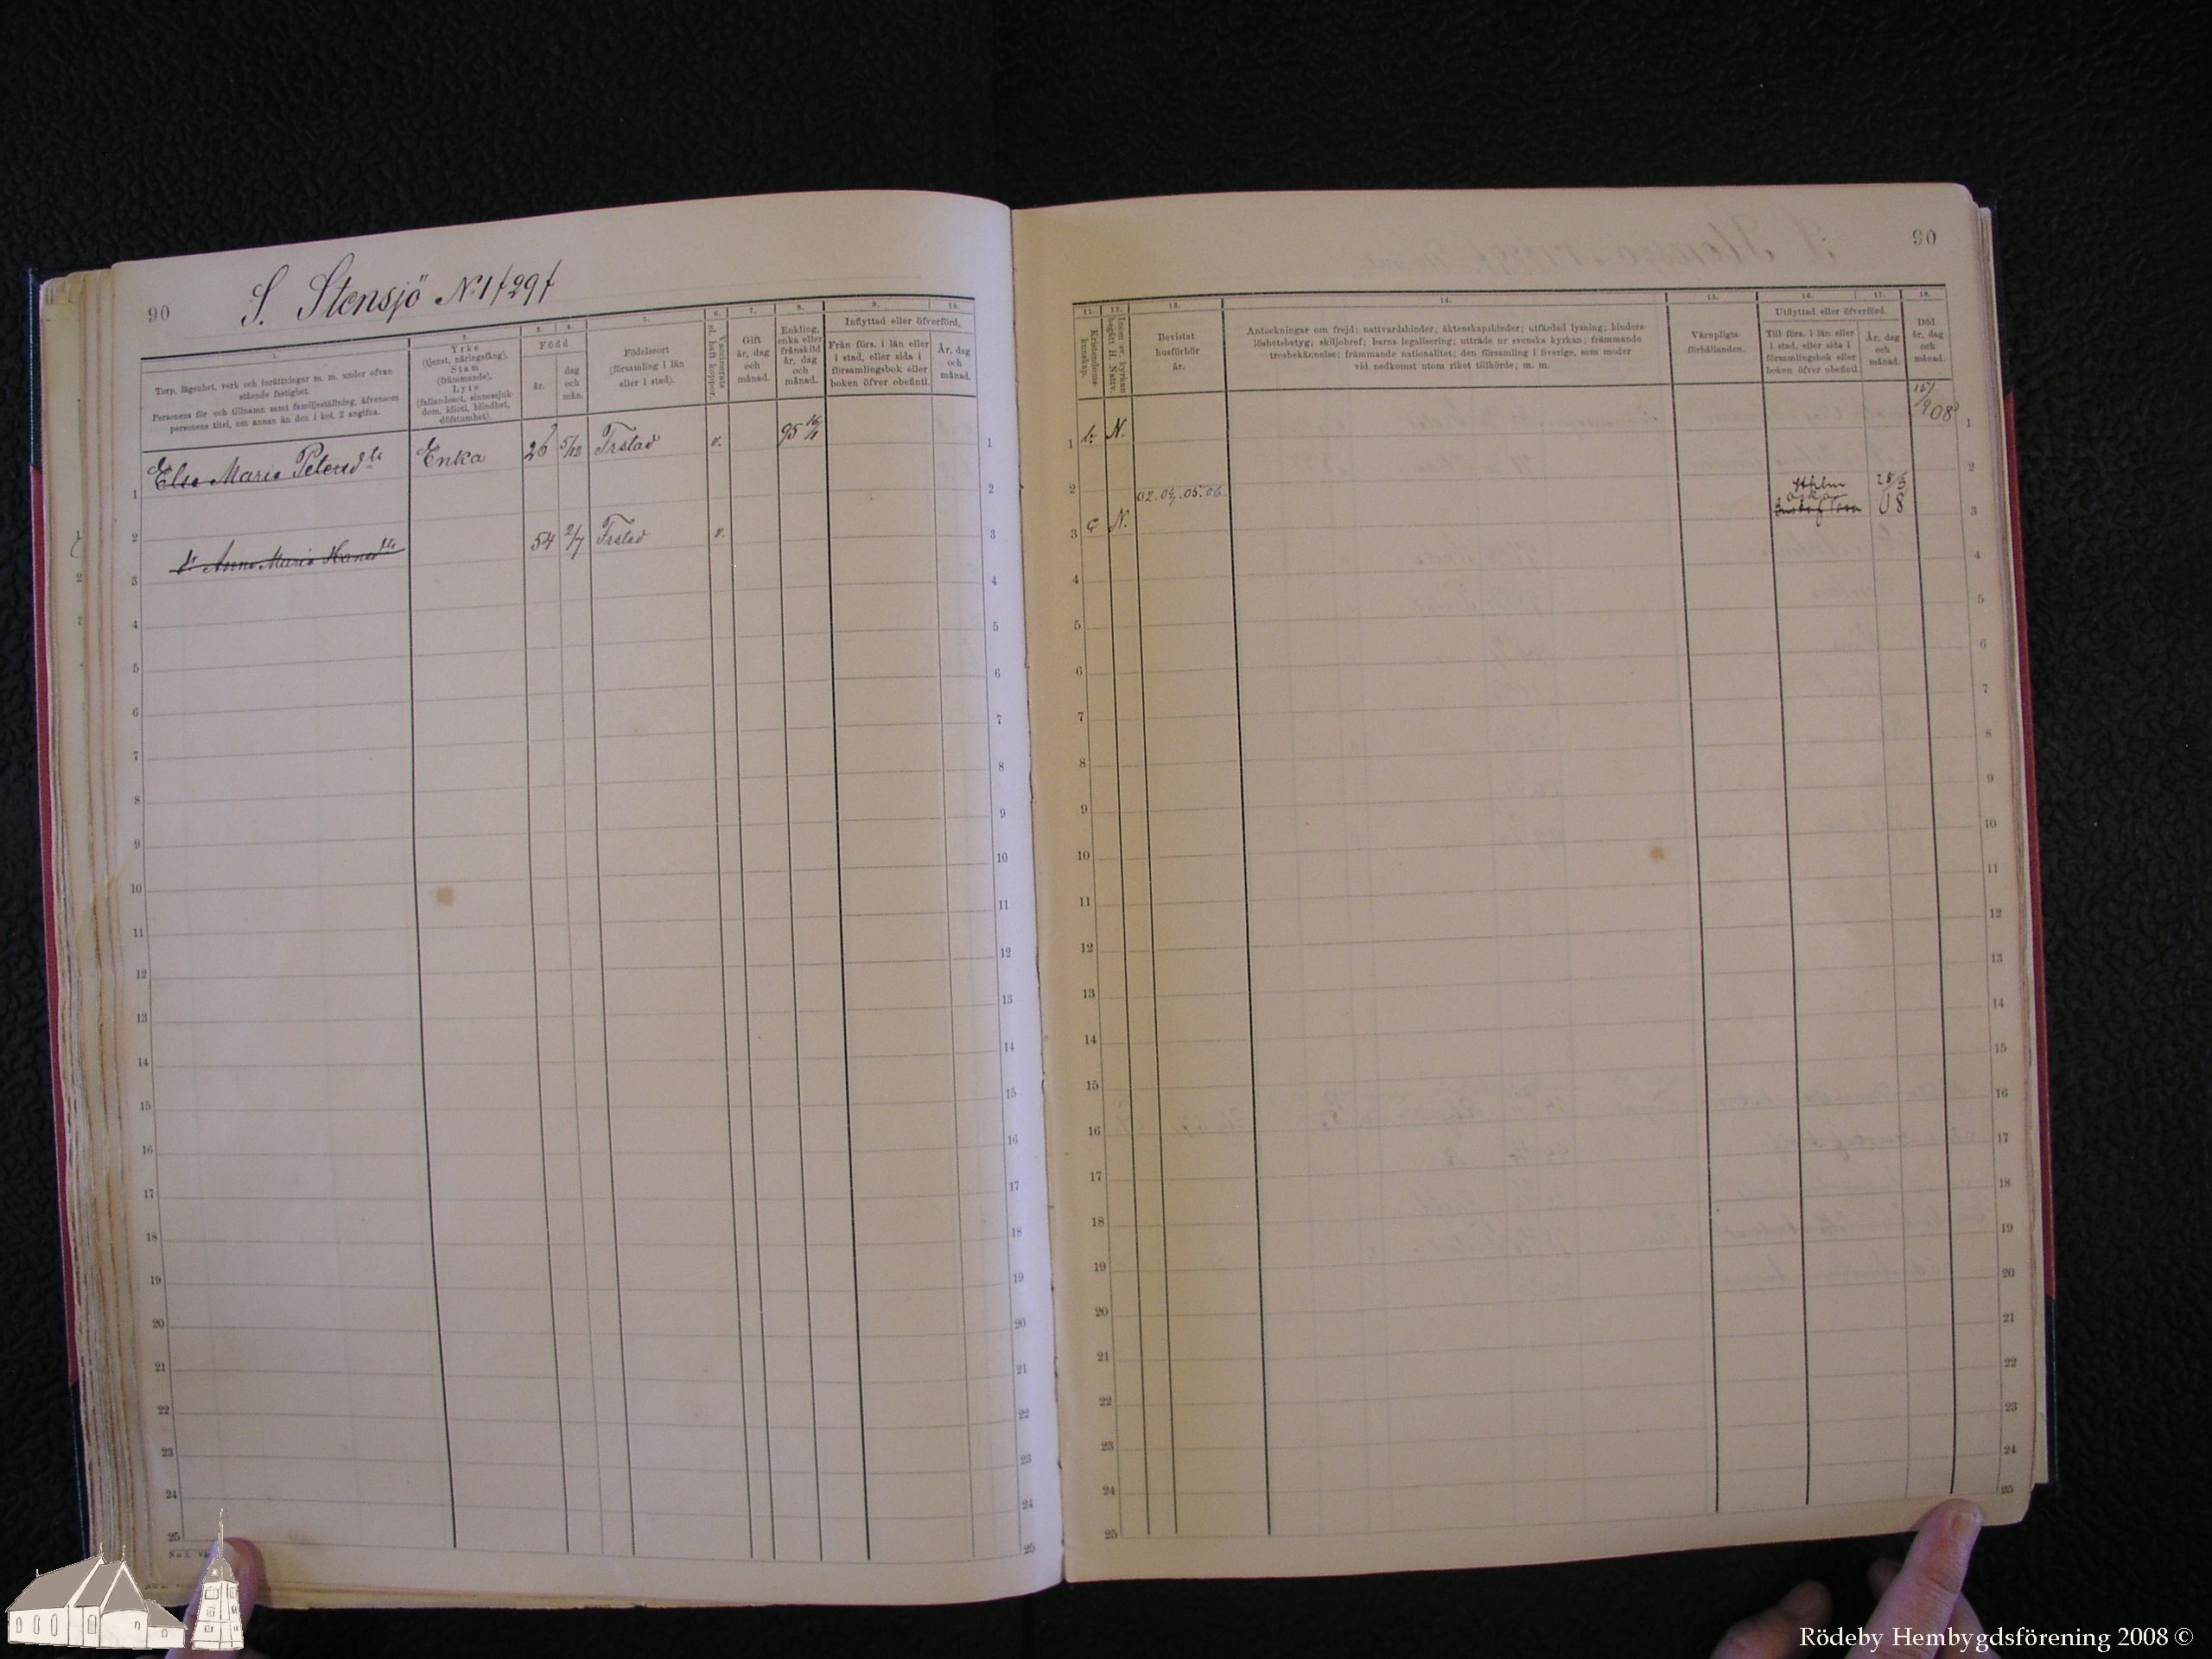 90
S. Stensjö N:1 f 29 f
1.
Torp, lägenhet, verk och inrättningar m. m. under ofvan
stående fastighet.
Personens för- och tillnamn samt familjeställning, äfvensom
personens titel, om annan än den i kol. 2 angifna.
2.
Yrke
(tjenst, näringsfång).
Stam
(främmande).
Lyte
(fallandesot, sinnessjuk-
dom, idioti, blindhet,
döfstumhet).
3. 4.
Född
år.
dag
och
mån.
5.
Födelseort
(församling i län
eller i stad).
6.
Vaccinerats
el. haft koppor.
7.
Gift
år, dag
och
månad.
8.
Enkling,
enka eller
frånskild
år, dag
och
månad.
9. 10.
Inflyttad eller öfverförd,
Från förs. i län eller
i stad, eller sida i
församlingsbok eller
boken öfver obefintl.
År, dag
och
månad.
Elsa Maria Petersd:tr Enka 26 5/12 Frstad v. 95 16/11
d: Anna Maria Hansd:tr 54 2/7 Frstad v.
1
2
3
4
5
6
7
8
9
10
11
12
13
14
15
16
17
18
19
20
21
22
23
24
25
1
2
3
4
5
6
7
8
9
10
11
12
13
14
15
16
17
18
19
20
21
22
23
24
25
90
11.
Kristendoms-
kunskap.
12.
Inom sv. kyrkan
begått H. Nattv.
13.
Bevistat
husförhör
år.
14.
Anteckningar om frejd; nattvardshinder; äktenskapshinder; utfärdad lysning; hinders-
löshetsbetyg; skiljobref; barns legalisering; utträde ur svenska kyrkan; främmande
trosbekännelse; främmande nationalitet; den församling i Sverige, som moder
vid nedkomst utom riket tillhörde; m. m.
15.
Värnpligts-
förhållanden.
16. 17.
Utflyttad eller öfverförd.
Till förs. i län eller
i stad, eller sida i
församlingsbok eller
boken öfver obefintl.
År, dag
och
månad.
18.
Död
år, dag
och
månad.
N. 15/9 08
02. 04. 05. 06.
N. Sthlm Oskar 28/5 08
1
2
3
4
5
6
7
8
9
10
11
12
13
14
15
16
17
18
19
20
21
22
23
24
25
1
2
3
4
5
6
7
8
9
10
11
12
13
14
15
16
17
18
19
20
21
22
23
24
25
Rödeby Hembygdsförening 2008 ©